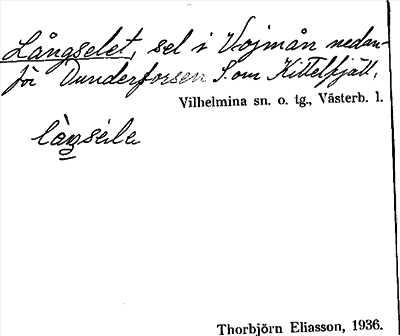 Långselet, sel i Vojmån nedan-
för Dunderforsen S. om Kittelfjäll.
Vilhelmina sn. o. tg., Västerb. l.
làŋséle
Thorbjörn Eliasson, 1936.